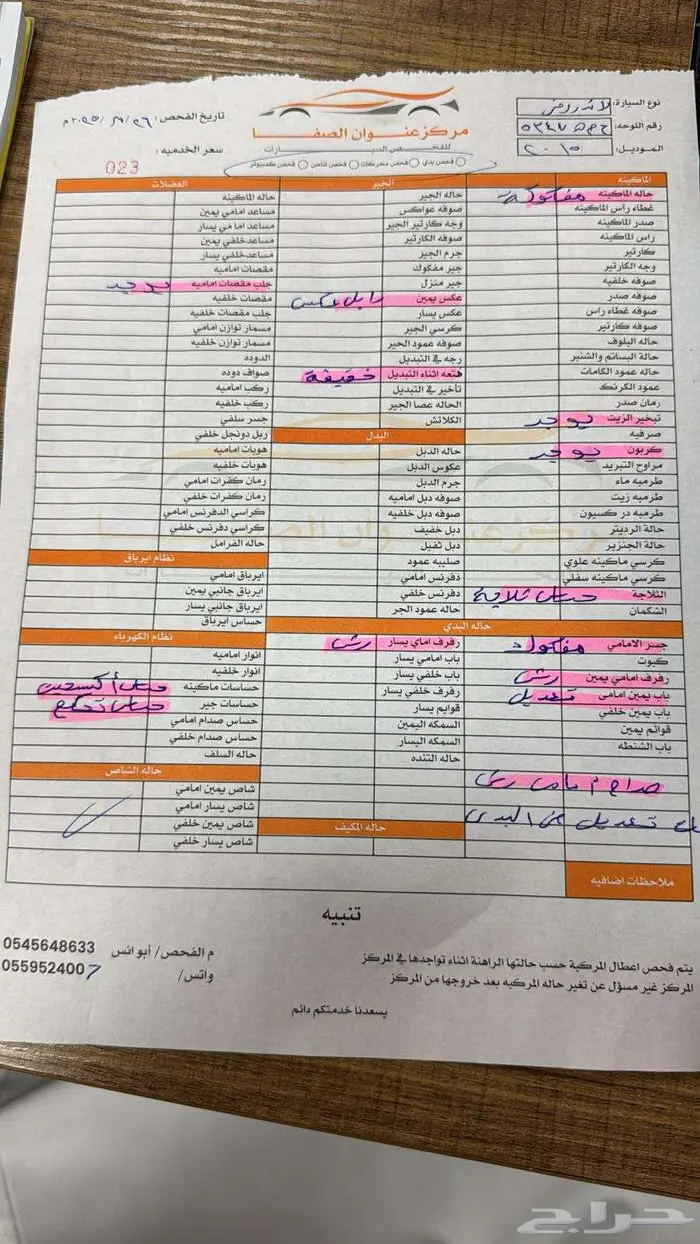 نوع السيارة: لاندروفر
رقم اللوحه:
الموديل: ٢٠١٥
مركز عنوان الصفا
للفحص السيارات
تاريخ الفحص:
سعر الخدميه:
023
فحص بدي فحص محركات فحص شاص فحص كمبيوتر
الماكينه
حاله الماكينه مفكوكه
غطاء راس الماكينه
صدر الماكينه
راس الماكينه
كارتير
وجه الكارتير
صوفه خلفيه
صوفه صدر
صوفه غطاء راس
صوفه كارتير
حاله البلوف
حالة البساتم والشنبر
حاله عمود الكامات
عمود الكرنك
رمان صدر
تبخير الزيت يوجد
صرفيه
كربون يوجد
مراوح التبريد
طرمبه ماء
طرمبه زيت
طرمبه در كسيون
حالة الرديتر
حالة الجنزير
كرسي ماكينه علوي
كرسي ماكينه سفلي
الثلاجة حساس ثلاجة
الشكمان
الجير
حاله الجير
صوفه عواكس
وجه كارتير الجير
صوفه الكارتير
جرم الجير
جير مفكوك
جير منزل
عكس يمين دابل عكس
عكس يسار
كرسي الجير
صوفه عمود الجير
رجه في التبديل
فتعه اثناء التبديل خفيفة
تأخير في التبديل
الحاله عصا الجير
الكلاتش
البدل
حاله الدبل
عكوس الدبل
جرم الدبل
صوفه دبل اماميه
صوفه دبل خلفيه
دبل خفيف
دبل ثقيل
صليبه عمود
دفرنس امامي
دفرنس خلفي
حاله عمود الجر
العضلات
حاله الماكينه
مساعد امامي يمين
مساعد امامي يسار
مساعد خلفي يمين
مساعد خلفي يسار
مقصات اماميه
جلب مقصات اماميه يوجد
مقصات خلفيه
جلب مقصات خلفيه
مسمار توازن امامي
مسمار توازن خلفيه
الدوده
صواف دوده
ركب اماميه
ركب خلفيه
جسر سلفي
ربل دونجل خلفي
هوبات اماميه
هوبات خلفيه
رمان كفرات امامي
رمان كفرات خلفي
كراسي الدفرنس امامي
كراسي دفرنس خلفي
حاله الفرامل
نظام ايرباق
ايرباق امامي
ايرباق جانبي يمين
ايرباق جانبي يسار
حساس ايرباق
حاله البدي
جسر الامامي مفكوك
كبوت
رفرف امامي يمين رش
باب يمين امامي تعديل
باب يمين خلفي
قوائم يمين
باب الشنطه
صدام امامي رش
تعديل في البدي
رفرف اماي يسار رش
باب امامي يسار
باب خلفي يسار
رفرف خلفي يسار
قوايم يسار
السمكه اليمين
السمكه اليسار
حاله التنده
حاله المكيف
نظام الكهرباء
انوار اماميه
انوار خلفيه
حساسات ماكينه حساس أكسجين
حساسات جير حساس تحكم
حساس صدام امامي
حساس صدام خلفي
حاله السلف
حاله الشاص
شاص يمين امامي
شاص يسار امامي
شاص يمين خلفي
شاص يسار خلفي
ملاحظات اضافيه
تنبيه
يتم فحص اعطال المركبة حسب حالتها الراهنة اثناء تواجدها في المركز
المركز غير مسؤل عن تغير حاله المركبه بعد خروجها من المركز
يسعدنا خدمتكم دائم
م الفحص/ أبو انس 0545648633
واتس/ 0559524007
حراج